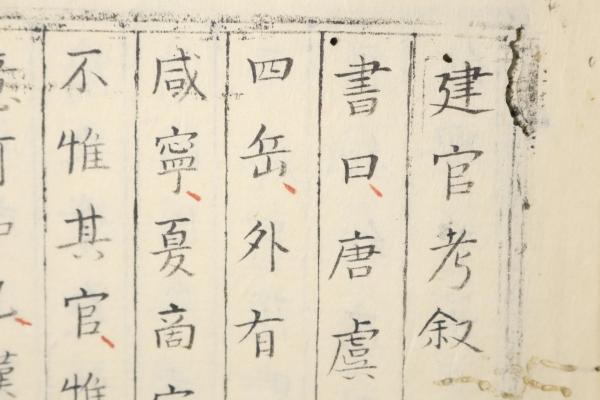 建官考叙
書曰唐虞
四岳外有
咸寧夏商
不惟其官惟